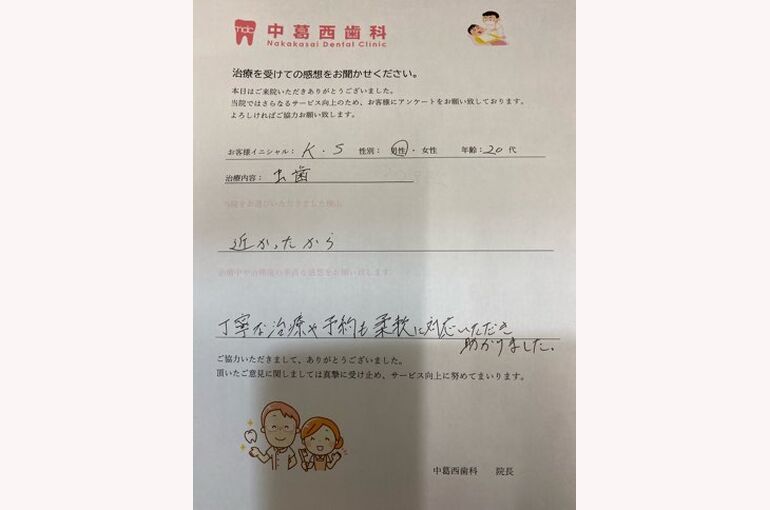 ndc 中葛西歯科
Nakakasai Dental Clinic
治療を受けての感想をお聞かせください。
本日はご来院いただきありがとうございました。
当院ではさらなるサービス向上のため、お客様にアンケートをお願い致しております。
よろしければご協力お願い致します。
お客様イニシャル: K・S 性別: 男性・女性 年齢:20代
治療内容: 虫歯
当院をお選びいただきました理由
近かったから
治療中や治療後の率直な感想をお願い致します
丁寧な治療や予約も柔軟に対応いただき
助かりました。
ご協力いただきまして、ありがとうございました。
頂いたご意見に関しましては真摯に受け止め、サービス向上に努めてまいります。
中葛西歯科 院長